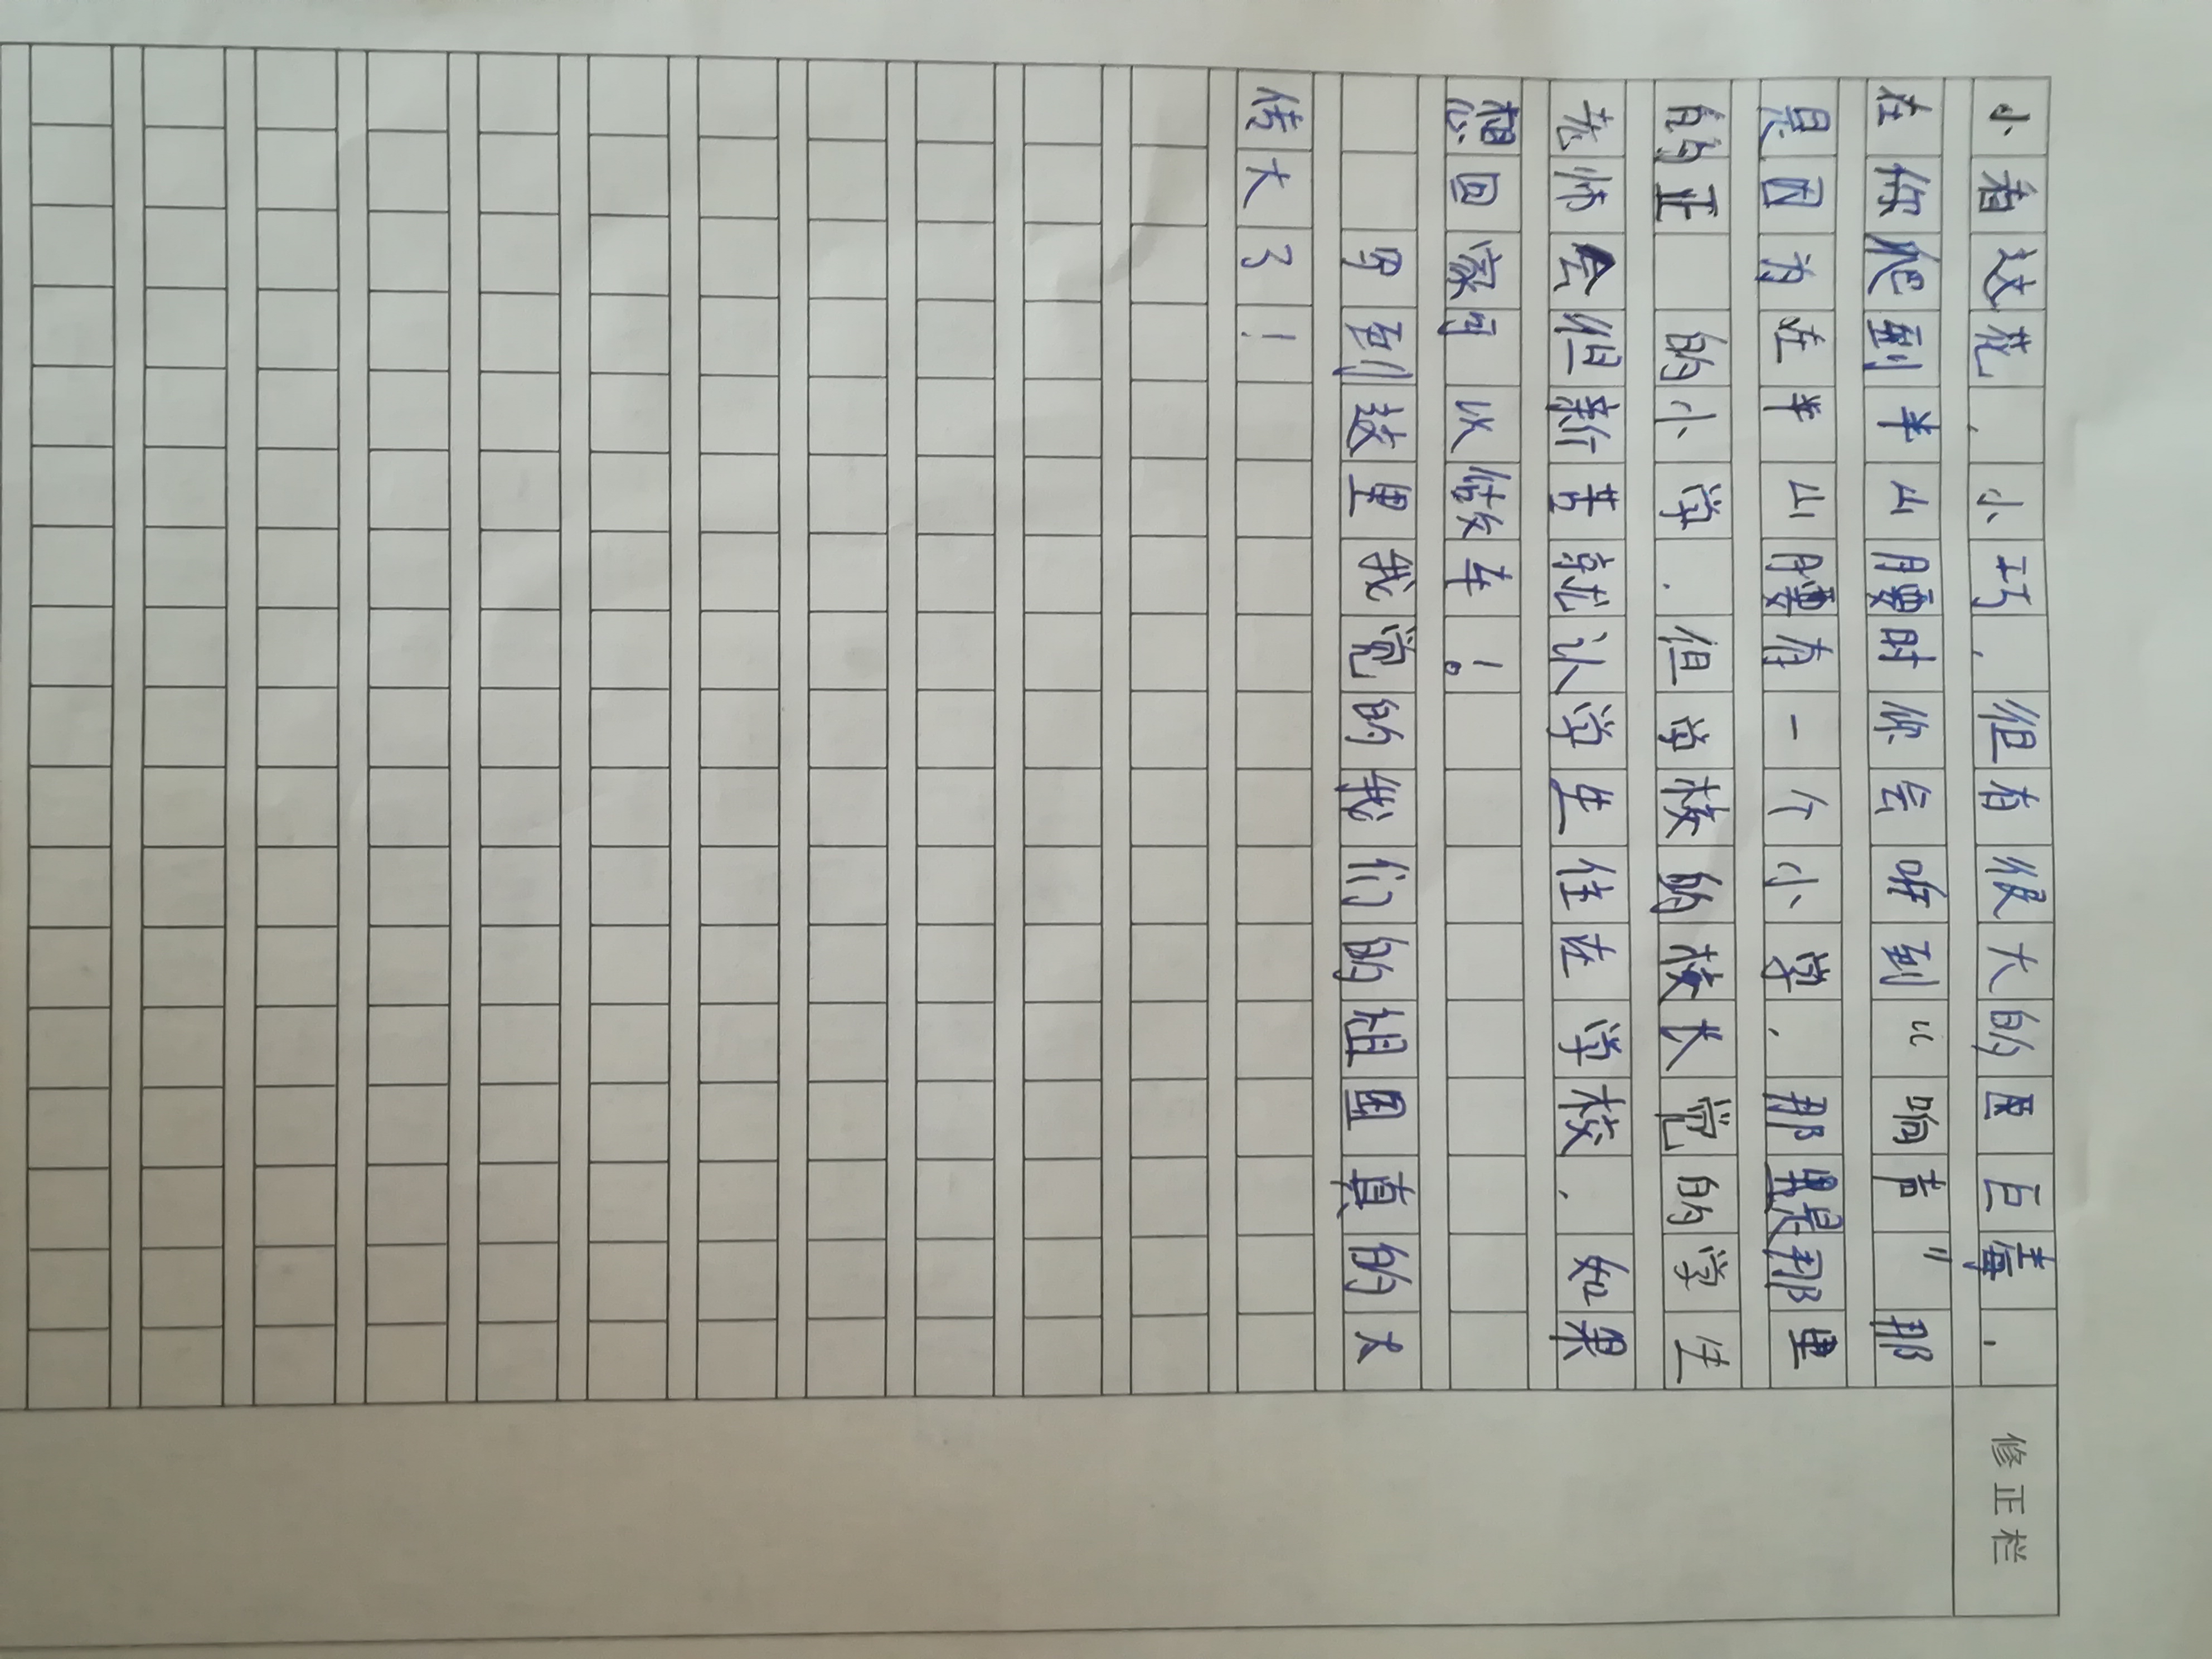 小着鼓花，小巧，但有很大的巨毒，
在你爬到半山腰时你会听到“响声”那
是因为在半山腰有一个小学，那是那里
的正 的小学，但学校的校长觉的学生
老师会但新苦就认学生住在学校，如果
想回家可以做车！。
写到鼓里我觉的我们的祖国真的太
伟大了！
修正栏